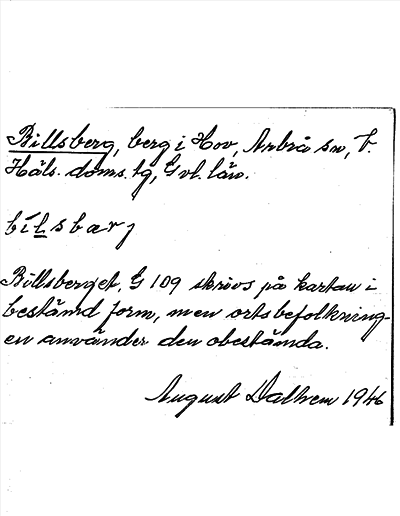 Billsberg, berg i Hov, Arbrå sn, V.
Häls. doms. tg, Gvl. län.
bílsbarj
Billsberget, G 109 skrivs på kartan i
bestämd form, men ortsbefolkning-
en använder den obestämda.
August Dalhem 1946